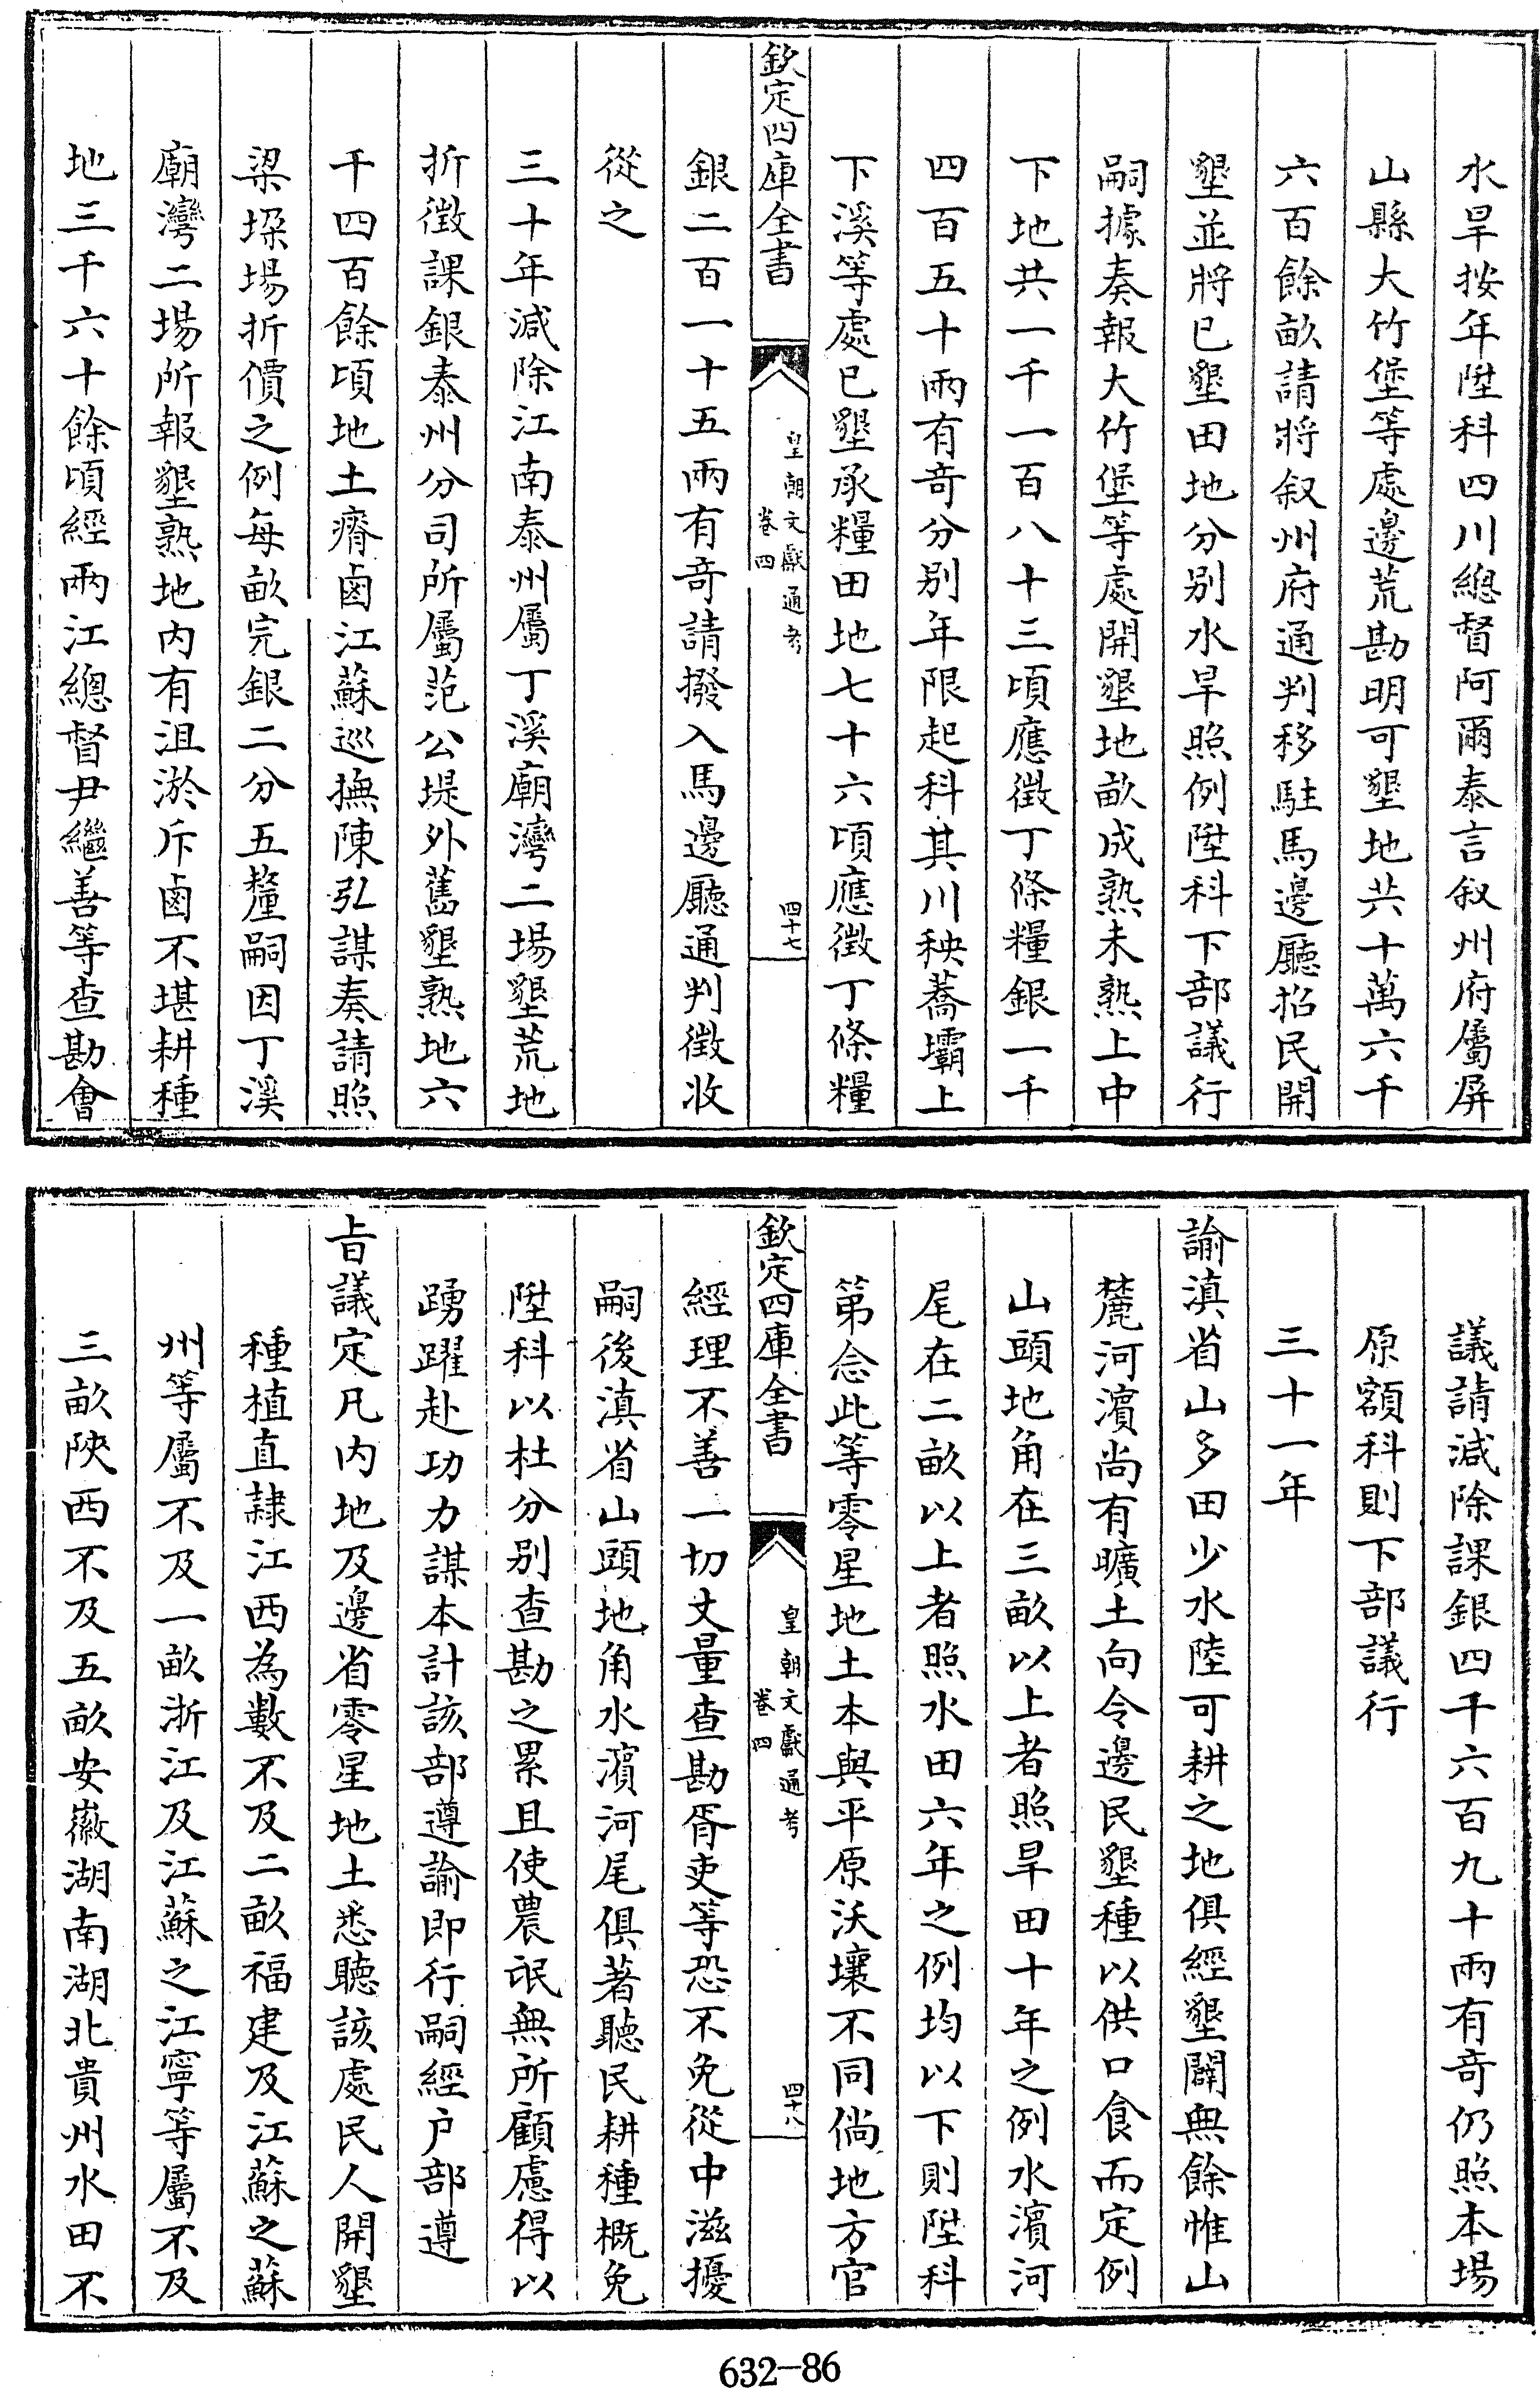 水旱按年陞科四川總督阿爾泰言叙州府屬屏
山縣大竹堡等處邊荒勘明可墾地共十萬六千
六百餘畝請將叙州府通判移駐馬邊廳招民開
墾並將已墾田地分别水旱照例陞科下部議行
嗣據奏報大竹堡等處開墾地畝成熟未熟上中
下地共一千一百八十三頃應徵丁條糧銀一千
四百五十兩有竒分别年限起科其川秧蕎壩上
下溪等處已墾承糧田地七十六頃應徵丁條糧
欽定四庫全書
皇朝文獻通考
卷四
四十七
銀二百一十五兩有竒請撥入馬邊廳通判徵收
從之
三十年減除江南泰州屬丁溪廟灣二場墾荒地
折徵課銀泰州分司所屬范公堤外舊墾熟地六
千四百餘頃地土瘠鹵江蘇巡撫陳弘謀奏請照
梁垜場折價之例每畝完銀二分五釐嗣因丁溪
廟灣二場所報墾熟地内有沮淤斥鹵不堪耕種
地三千六十餘頃經兩江總督尹繼善等查勘會
議請減除課銀四千六百九十兩有竒仍照本場
原額科則下部議行
三十一年
諭滇省山多田少水陸可耕之地俱經墾闢無餘惟山
麓河濵尚有曠土向令邊民墾種以供口食而定例
山頭地角在三畝以上者照旱田十年之例水濵河
尾在二畝以上者照水田六年之例均以下則陞科
第念此等零星地土本與平原沃壤不同倘地方官
欽定四庫全書
皇朝文獻通考
卷四
四十八
經理不善一切丈量查勘胥吏等恐不免從中滋擾
嗣後滇省山頭地角水濵河尾俱著聽民耕種概免
陞科以杜分别查勘之累且使農氓無所顧慮得以
踴躍赴功力謀本計該部遵諭即行嗣經户部遵
㫖議定凡内地及邊省零星地土悉聽該處民人開墾
種植直隷江西為數不及二畝福建及江蘇之蘇
州等屬不及一畝浙江及江蘇之江寧等屬不及
三畝陜西不及五畝安徽湖南湖北貴州水田不
632-86